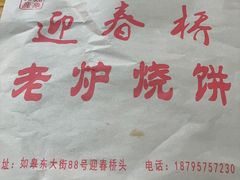 迎春桥
老炉烧饼
址:如皋东大街88号迎春桥头 电话:18795757230